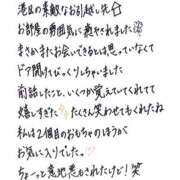 港区の素敵なお引越し先☆
お部屋の雰囲気に癒やされました
まさかまたお会いできるとは思っていなくて
ドア開けてびっくりしちゃいました
前話したこと、いくつか覚えていてくれてて
嬉しすぎた♡ たくさん笑わせてもくれたね
私は2個目のおもちゃのほうが
お気に入りでした。♡
ちょーっと意地悪もされたけど！笑